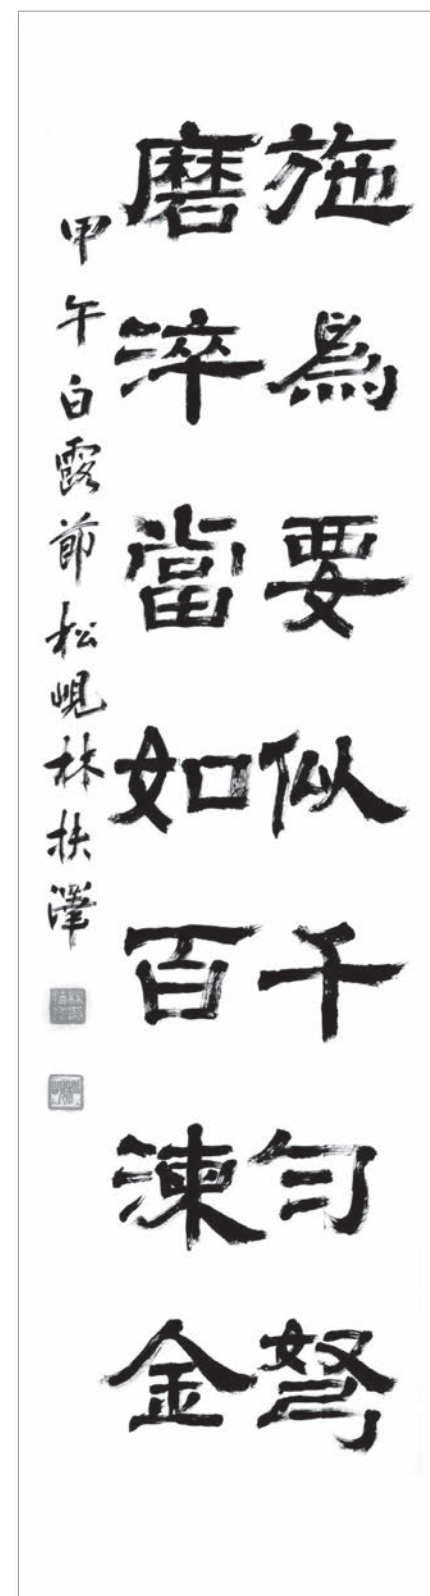 施爲要似千匀弩
磨淬當如百湅金
甲午白露節松峴林扶澤